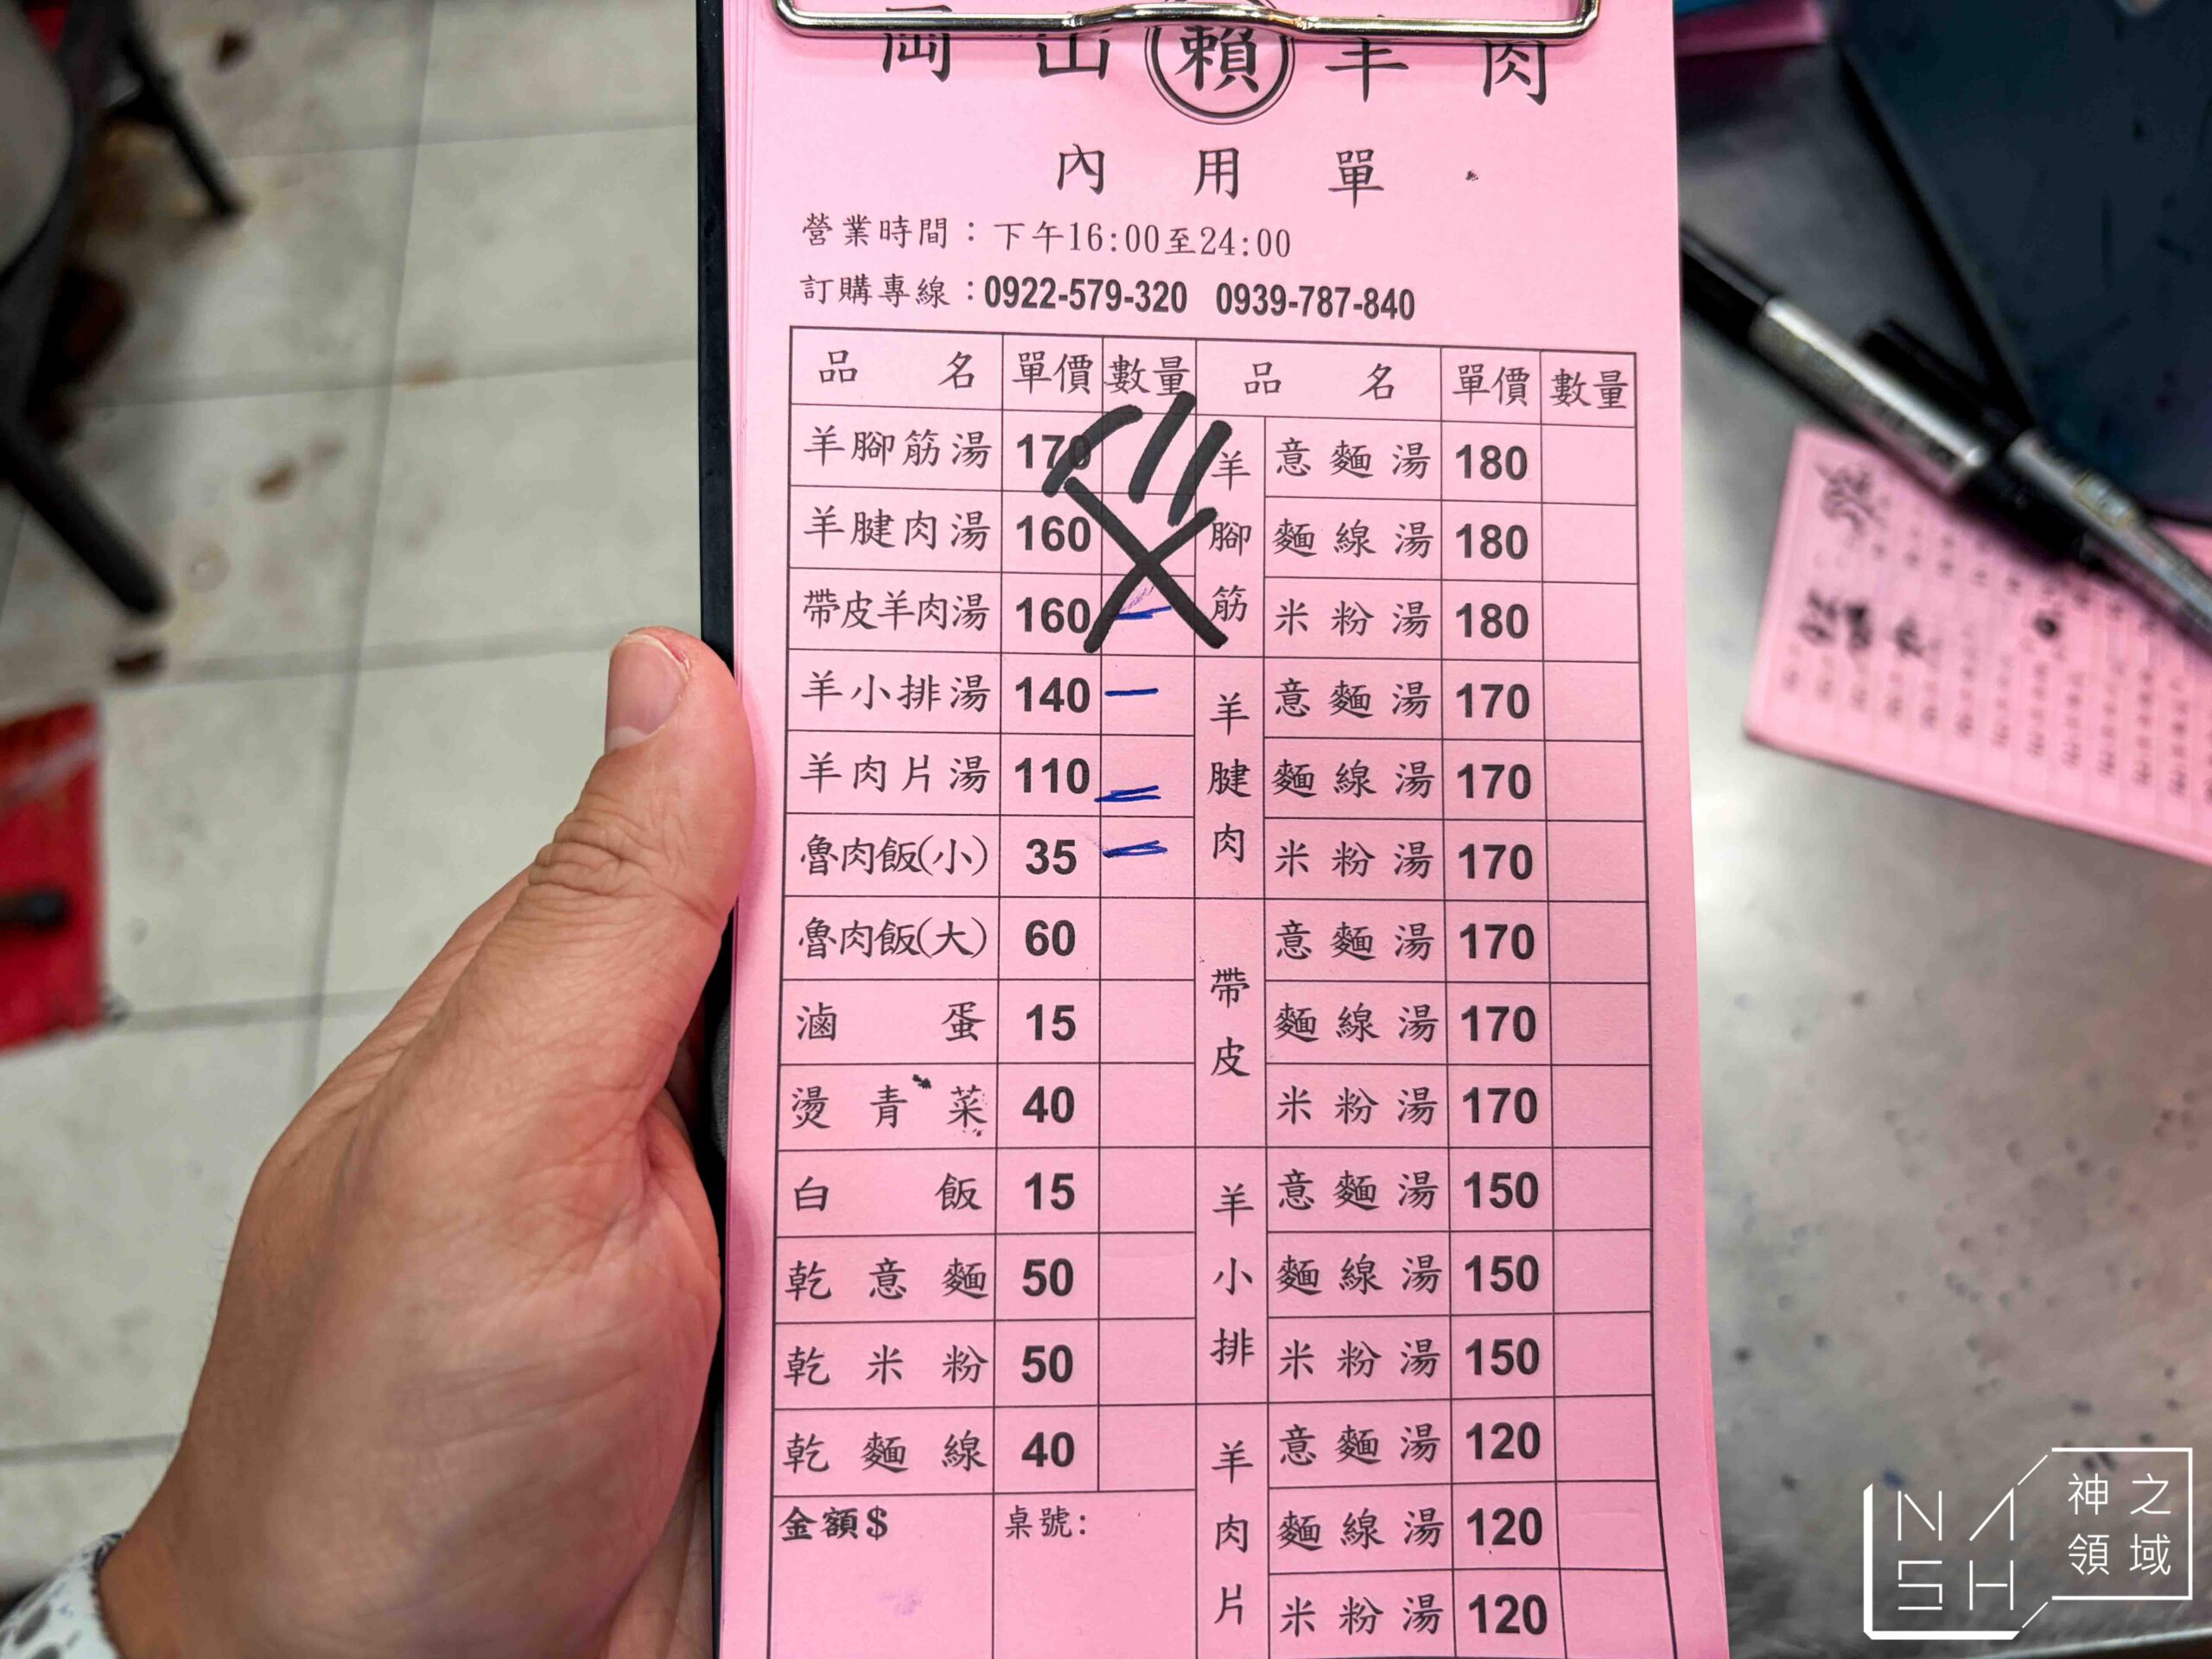 岡山賴羊肉
內用單
營業時間：下午16:00至24:00
訂購專線：0922-579-320 0939-787-840
品名 單價 數量 品名 單價 數量
羊腳筋湯 170
羊腱肉湯 160
帶皮羊肉湯 160
羊小排湯 140
羊肉片湯 110
魯肉飯(小) 35
魯肉飯(大) 60
滷蛋 15
燙青菜 40
白飯 15
乾意麵 50
乾米粉 50
乾麵線 40
金額$ 桌號:
羊腳筋
意麵湯 180
麵線湯 180
米粉湯 180
羊腱肉
意麵湯 170
麵線湯 170
米粉湯 170
帶皮
意麵湯 170
麵線湯 170
米粉湯 170
羊小排
意麵湯 150
麵線湯 150
米粉湯 150
羊肉片
意麵湯 120
麵線湯 120
米粉湯 120
NASH
神之領域